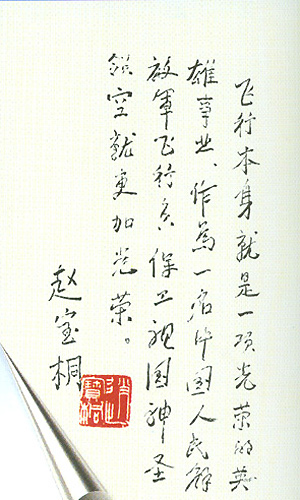 飞行本身就是一项光荣的英
雄事业、作為一名中国人民解
放軍飞行员保卫祖国神圣
领空就更加光荣。
赵宝桐